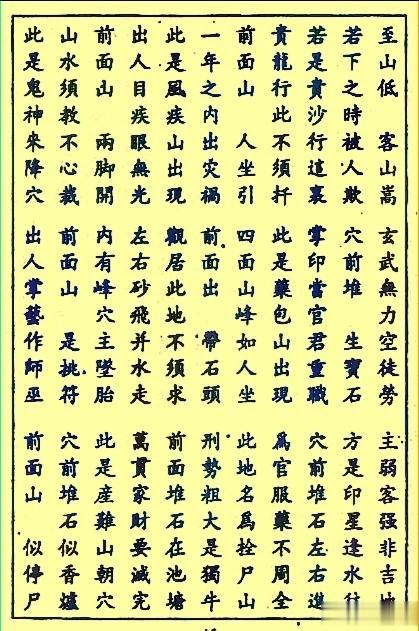 至山低　客山嵩　玄武無力空徒勞　主弱客强非吉地
若下之時被人欺　穴前堆　生寶石　方是印星逢水往
若是貴沙行這裏　掌印當官君重職　穴前堆石左右進
貴龍行此不須扦　此是藥包山出現　爲官服藥不周全
前面山　人坐引　四面山峰如人坐　此地名爲拴尸山
一年之内出灾禍　前面出　帶石頭　刑勢粗大是獨牛
此是風疾山出現　觀居此地不須求　前面堆石在池塘
出人目疾眼無光　左右砂飛并水走　萬貫家財要滅完
前面山　兩脚開　内有峰穴主墜胎　此是産難山朝穴
山水須教不心裁　前面山　是挑符　穴前堆石似香爐
此是鬼神來降穴　出人掌藝作師巫　前面山　似停尸